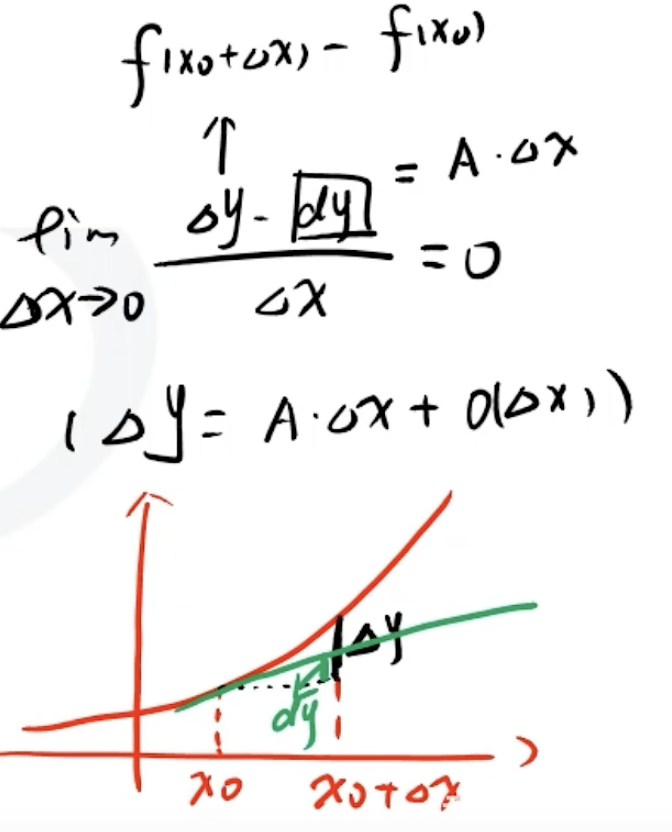 f(x0+Δx) - f(x0)
↑
lim Δx→0 (Δy - dy)/Δx = 0
= A·Δx
(Δy = A·Δx + o(Δx))
Δy
dy
x0 x0+Δx